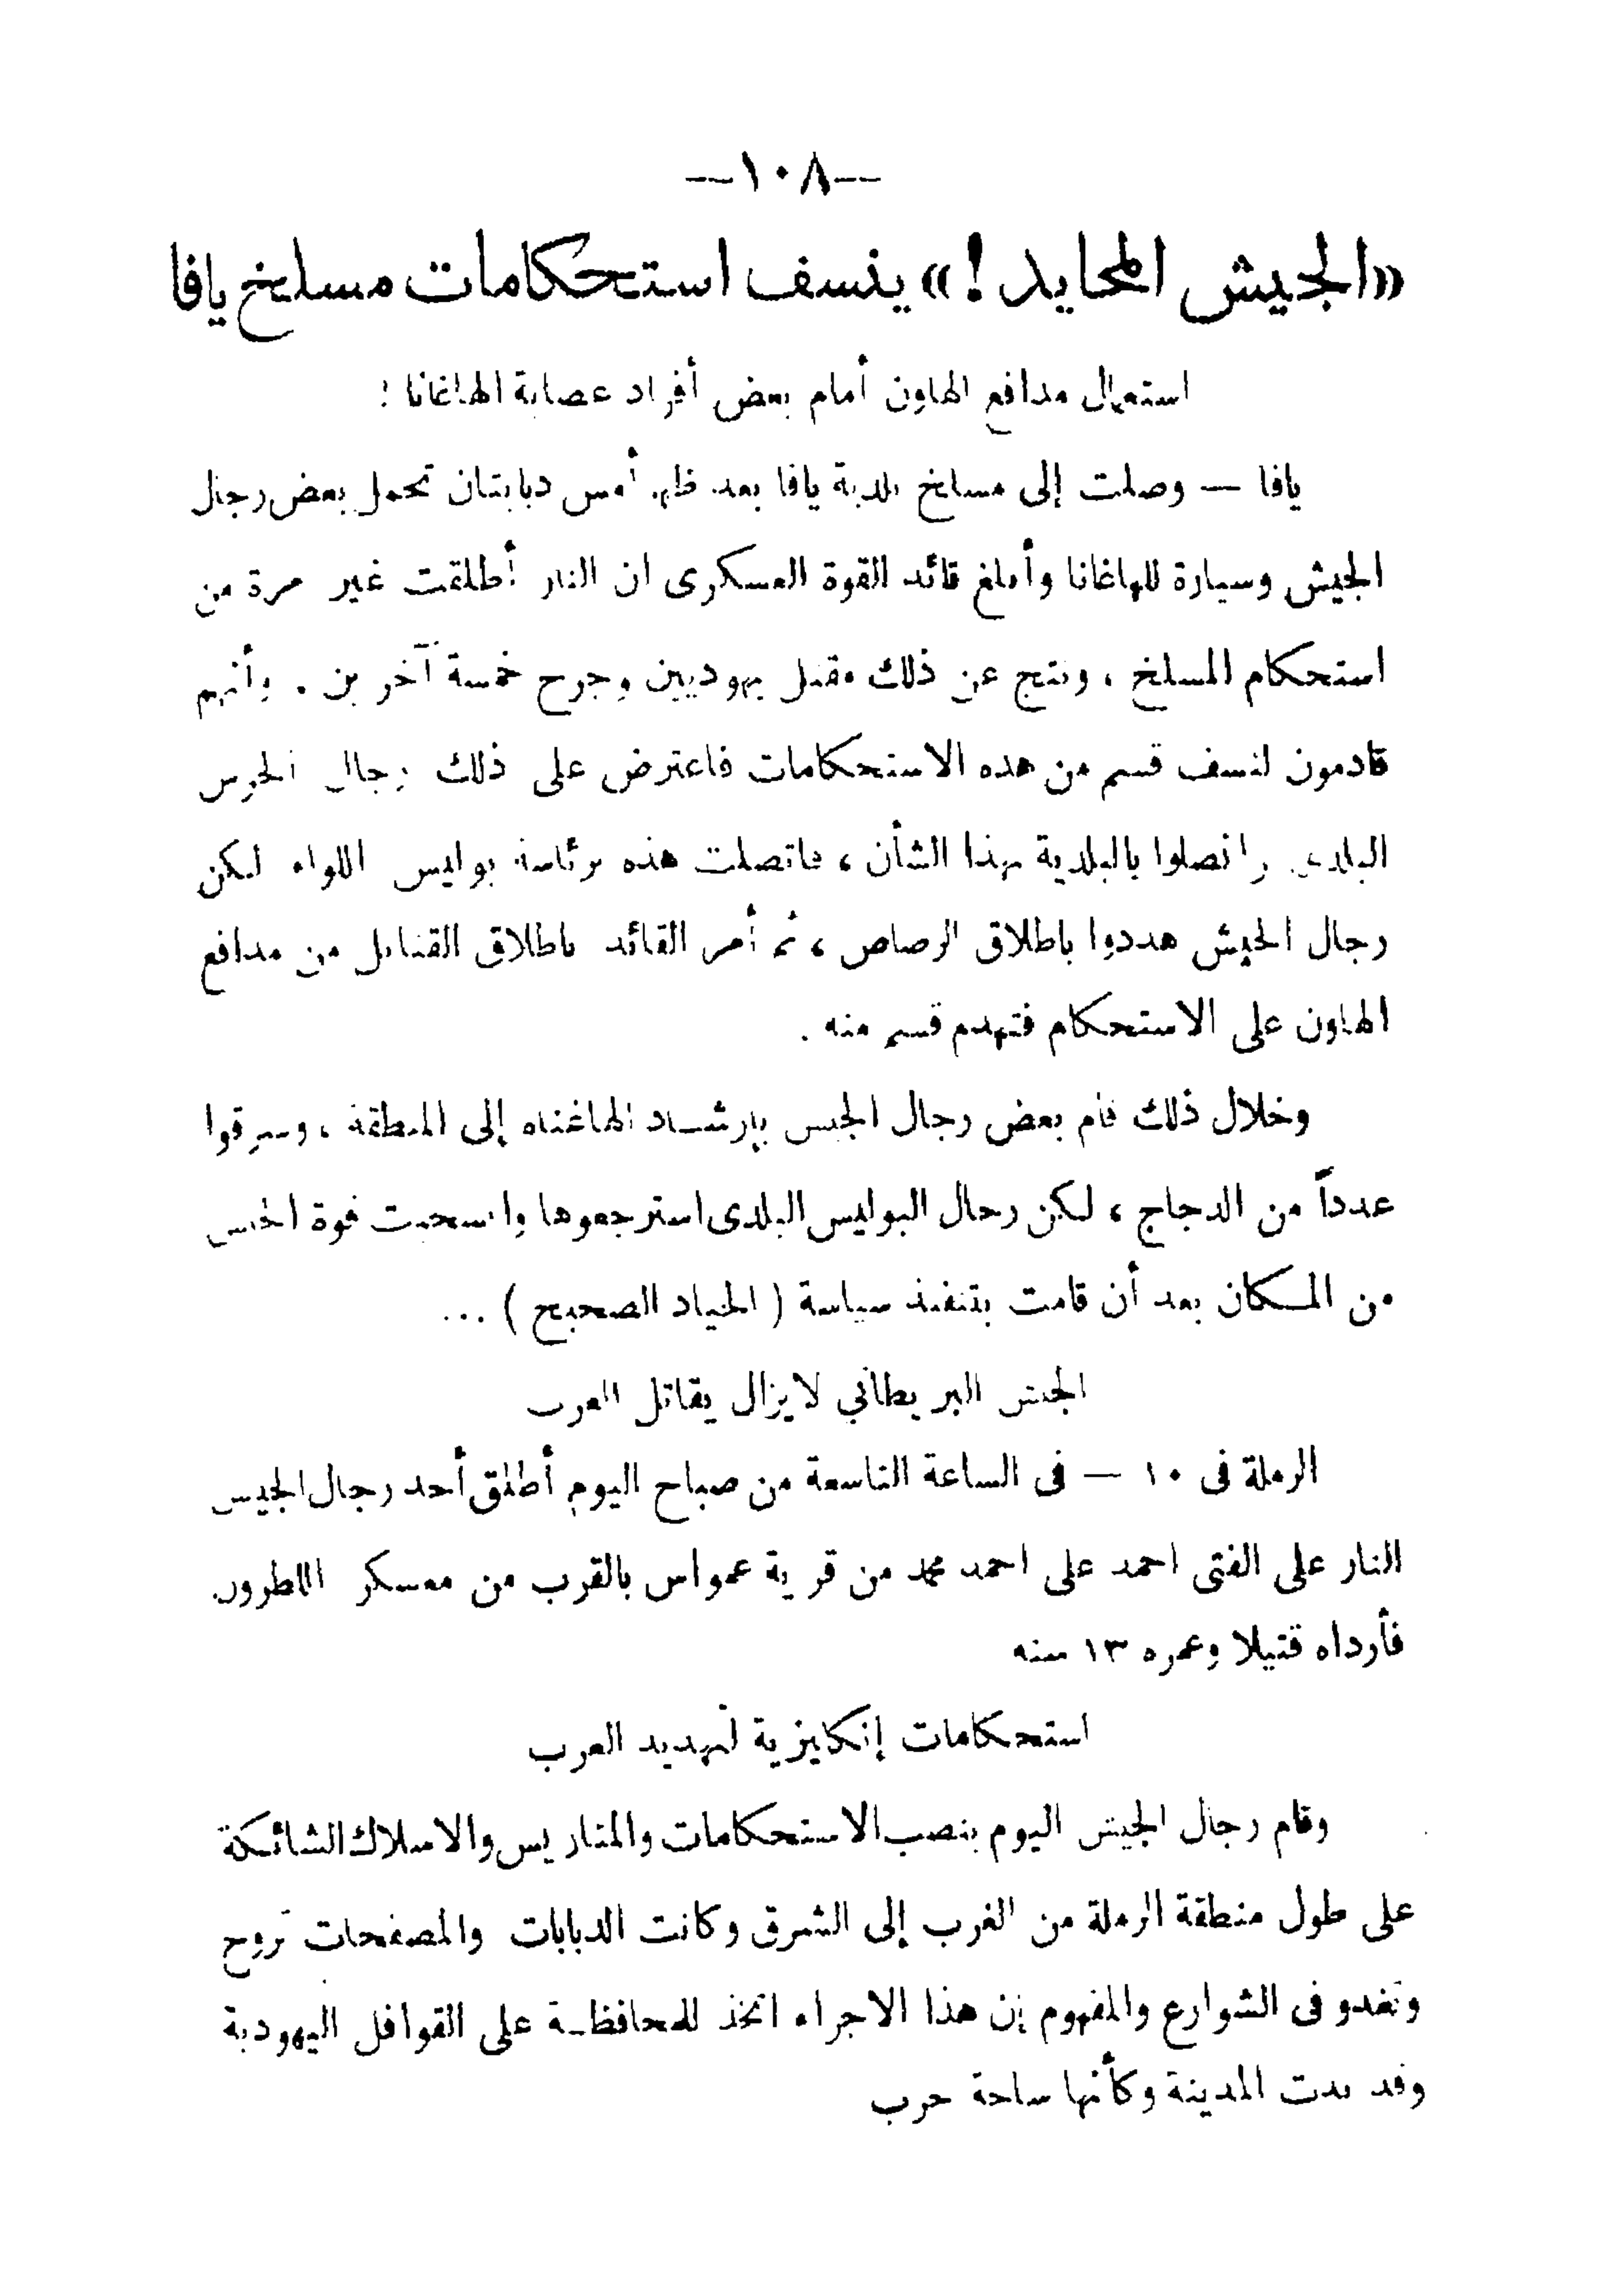 —١٠٨—
«الجيش المحايد !» ينسف استحكامات مسلخ يافا
استعمال مدافع الهاون أمام بعض أفراد عصابة الهاغانا !
يافا — وصلت إلى مسلخ بلدية يافا بعد ظهر أمس دبابتان تحمل بعض رجال
الجيش وسيارة للهاغانا وأبلغ قائد القوة العسكرى ان النار أطلقت غير مرة من
استحكام المسلخ ، ونتج عن ذلك مقتل يهوديين وجرح خمسة آخرين . وأنهم
قادمون لنسف قسم من هذه الاستحكامات فاعترض على ذلك رجال الحرس
البلدى واتصلوا بالبلدية بهذا الشأن ، فاتصلت هذه برئاسة بوليس اللواء لكن
رجال الجيش هددوا باطلاق الرصاص ، ثم أمر القائد باطلاق القنابل من مدافع
الهاون على الاستحكام فتهدم قسم منه .
وخلال ذلك قام بعض رجال الجيش بإرشاد الهاغناه إلى المنطقة ، وسرقوا
عدداً من الدجاج ، لكن رجال البوليس البلدى استرجعوها وانسحبت قوة الجيش
من المكان بعد أن قامت بتنفيذ سياسة ( الحياد الصحيح ) ...
الجيش البريطاني لا يزال يقاتل العرب
الرملة فى ١٠ — فى الساعة التاسعة من صباح اليوم أطلق أحد رجال الجيش
النار على الفتى احمد على احمد محمد من قرية عمواس بالقرب من معسكر اللطرون
فأرداه قتيلا وعمره ١٣ سنه
استحكامات إنكليزية لتهديد العرب
وقام رجال الجيش اليوم بنصب الاستحكامات والمتاريس والاسلاك الشائكة
على طول منطقة الرملة من الغرب إلى الشرق وكانت الدبابات والمصفحات تروح
وتغدو فى الشوارع والمفهوم إن هذا الاجراء اتخذ للمحافظة على القوافل اليهودية
وقد بدت المدينة وكأنها ساحة حرب